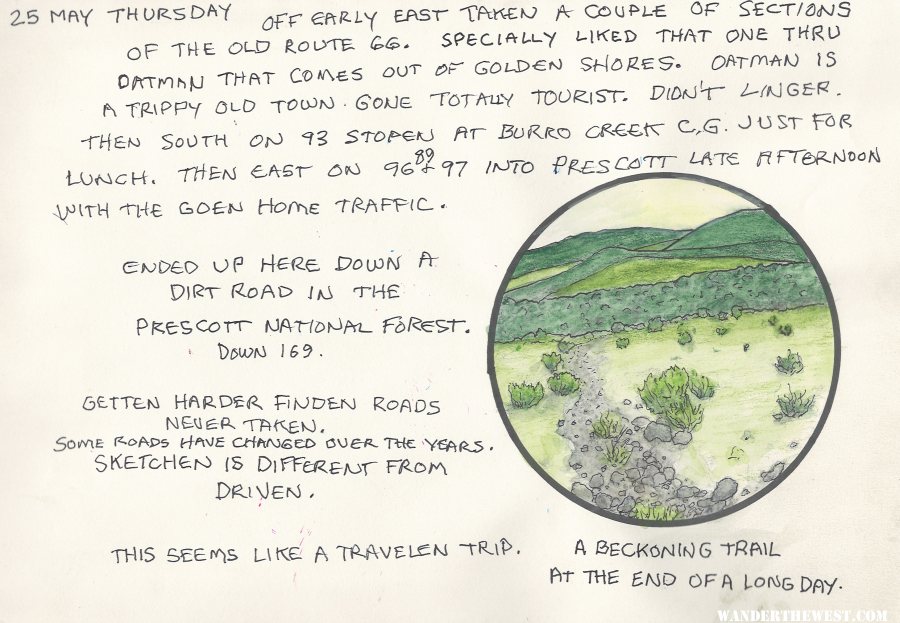 25 MAY THURSDAY OFF EARLY EAST TAKEN A COUPLE OF SECTIONS
OF THE OLD ROUTE 66. SPECIALLY LIKED THAT ONE THRU
OATMAN THAT COMES OUT OF GOLDEN SHORES. OATMAN IS
A TRIPPY OLD TOWN. GONE TOTALLY TOURIST. DIDN'T LINGER.
THEN SOUTH ON 93 STOPEN AT BURRO CREEK C.G. JUST FOR
LUNCH. THEN EAST ON 96 89 & 97 INTO PRESCOTT LATE AFTERNOON
WITH THE GOEN HOME TRAFFIC.
ENDED UP HERE DOWN A
DIRT ROAD IN THE
PRESCOTT NATIONAL FOREST.
DOWN 169.
GETTEN HARDER FINDEN ROADS
NEVER TAKEN.
SOME ROADS HAVE CHANGED OVER THE YEARS.
SKETCHEN IS DIFFERENT FROM
DRIVEN.
THIS SEEMS LIKE A TRAVELEN TRIP.
A BECKONING TRAIL
AT THE END OF A LONG DAY.
WANDERTHEWEST.COM